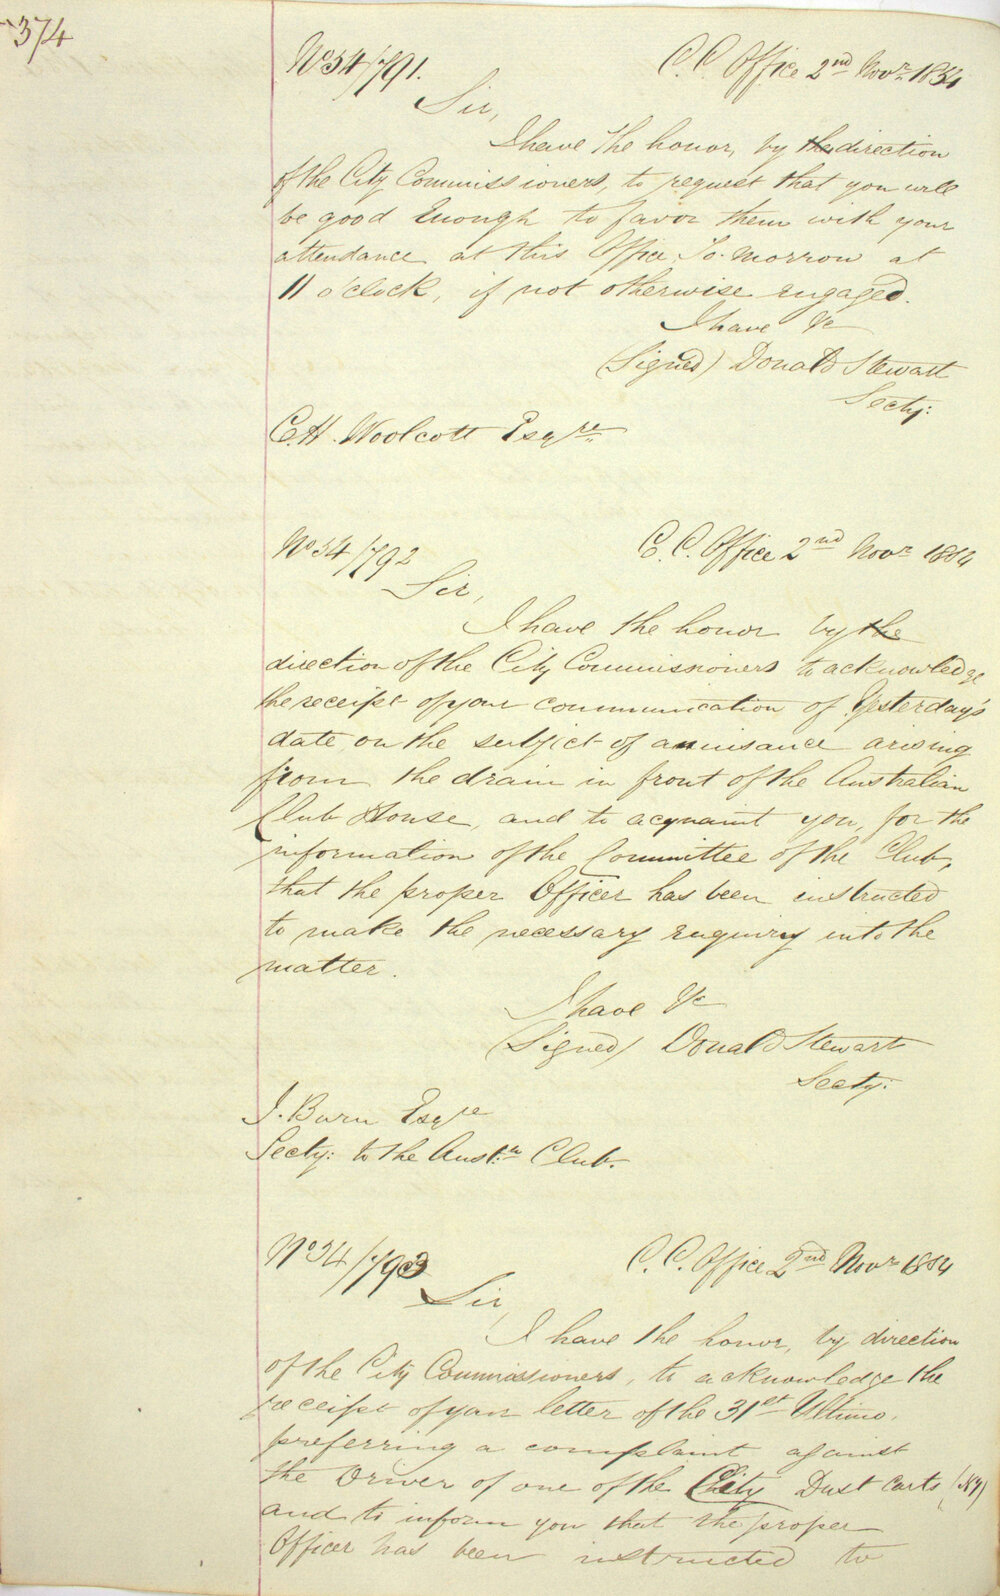 374
No 54/791. C.C. Office 2nd Novr 1854
Sir,
I have the honor, by the direction
of the City Commissioners, to request that you will
be good Enough to favor them with your
attendance at this Office, To-morrow at
11 o'clock, if not otherwise engaged.
I have &c
(Signed) Donald Stewart
Secty:
C.H. Woolcott Esqre
No 54/792 C.C. Office 2nd Novr 1854
Sir,
I have the honor by the
direction of the City Commissioners to acknowledge
the receipt of your communication of Yesterday's
date, on the subject of a nuisance arising
from the drain in front of the Australian
Club House, and to acquaint you, for the
information of the Committee of the Club,
that the proper Officer has been instructed
to make the necessary enquiry into the
matter.
I have &c
(Signed) Donald Stewart
Secty:
J. Burn Esqre
Secty: to the Aust:n Club.
No 54/793 C.C. Office 2nd Novr 1854
Sir,
I have the honor, by direction
of the City Commissioners, to acknowledge the
receipt of your letter of the 31st Ultimo,
preferring a complaint against
the Driver of one of the City Dust Carts (No 7)
and to inform you that the proper
Officer has been instructed to